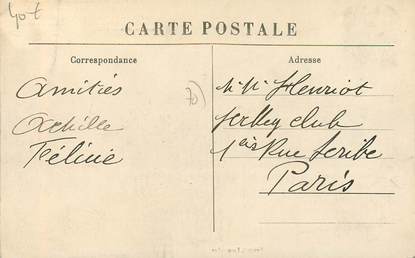 CARTE POSTALE
Correspondance
Adresse
Amitiés
Achille
Féline
Mr Mr Henriot
Jockey club
1 bis Rue Scribe
Paris